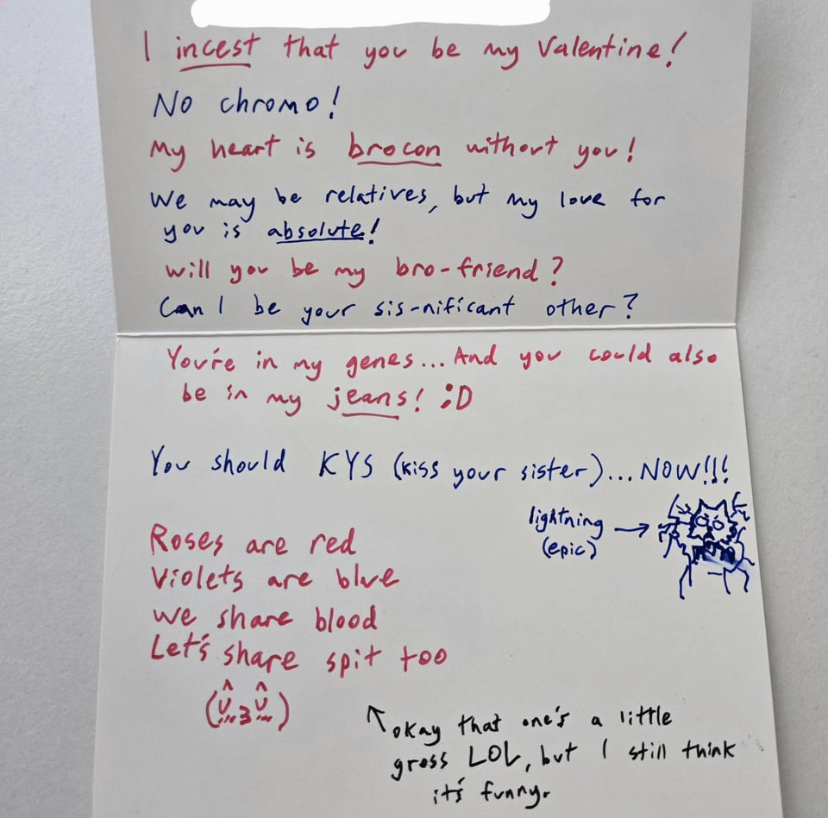 I incest that you be my Valentine!
No chromo!
My heart is brocon without you!
We may be relatives, but my love for
you is absolute!
Will you be my bro-friend?
Can I be your sis-nificant other?
You're in my genes... And you could also
be in my jeans! ;D
You should KYS (kiss your sister)... NOW!!!
lightning →
(epic)
Roses are red
Violets are blue
We share blood
Let's share spit too
↖ okay that one's a little
gross LOL, but I still think
it's funny.